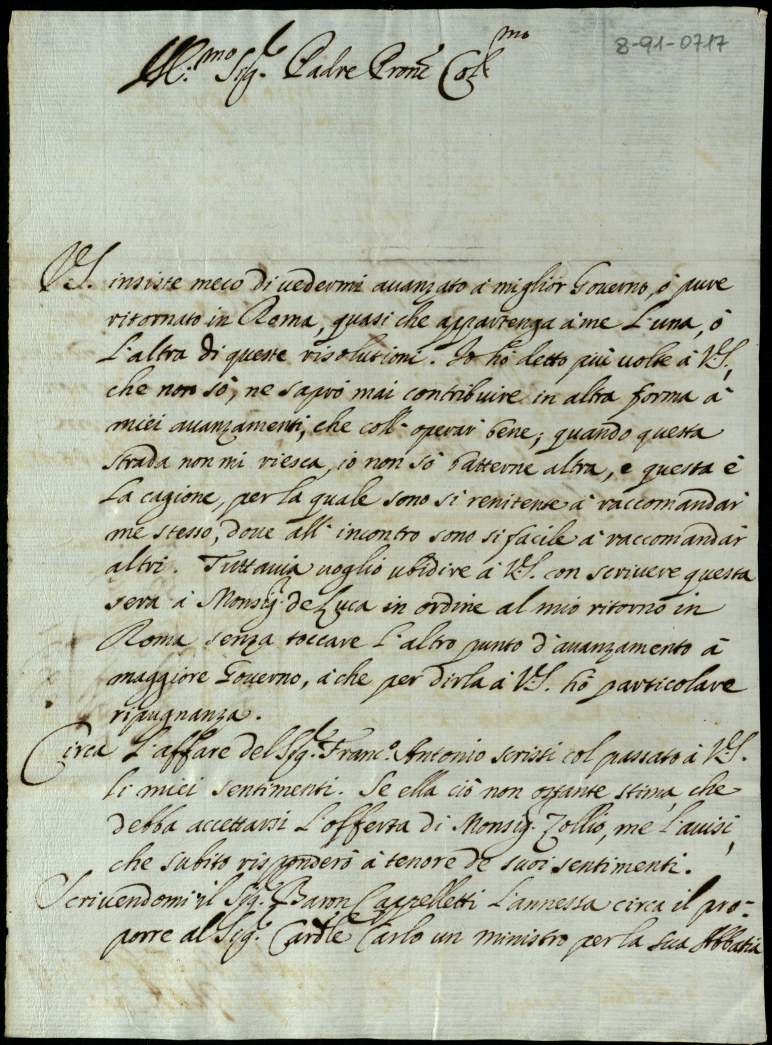 8-91-0717
Ill.mo Sig.r Padre Pron.e Col.mo
V.S. insiste meco di vedermi auanzato à miglior Gouerno, ò pure
ritornato in Roma, quasi che appartenga à me l'una, ò
l'altra di queste risolutioni. Io hò detto più uolte à V.S.,
che non sò, ne saprò mai contribuire in altra forma à
miei auanzamenti, che coll'operar bene; quando questa
strada non mi riesca, io non sò batterne altra, e questa è
la cagione, per la quale sono si renitente à raccomandar
me stesso, doue all'incontro sono si facile à raccomandar
altri. Tuttauia uoglio ubidire à V.S. con scriuere questa
sera à Monsig.r de Luca in ordine al mio ritorno in
Roma senza toccare l'altro punto d'auanzamento à
maggiore Gouerno, à che per dirla à V.S. hò particolare
ripugnanza.
Circa l'affare del Sig.r Franc.o Antonio scrissi col passato à V.S.
li miei sentimenti. Se ella ciò non ostante stima, che
debba accettarsi l'offerta di Monsig.r Zollio, me l'auisi,
che subito risponderò à tenore de suoi sentimenti.
Scriuendomi il Sig.r Baron Cappelletti l'annessa circa il pro-
porre al Sig.r Card.le Carlo un ministro per la sua Abbatia